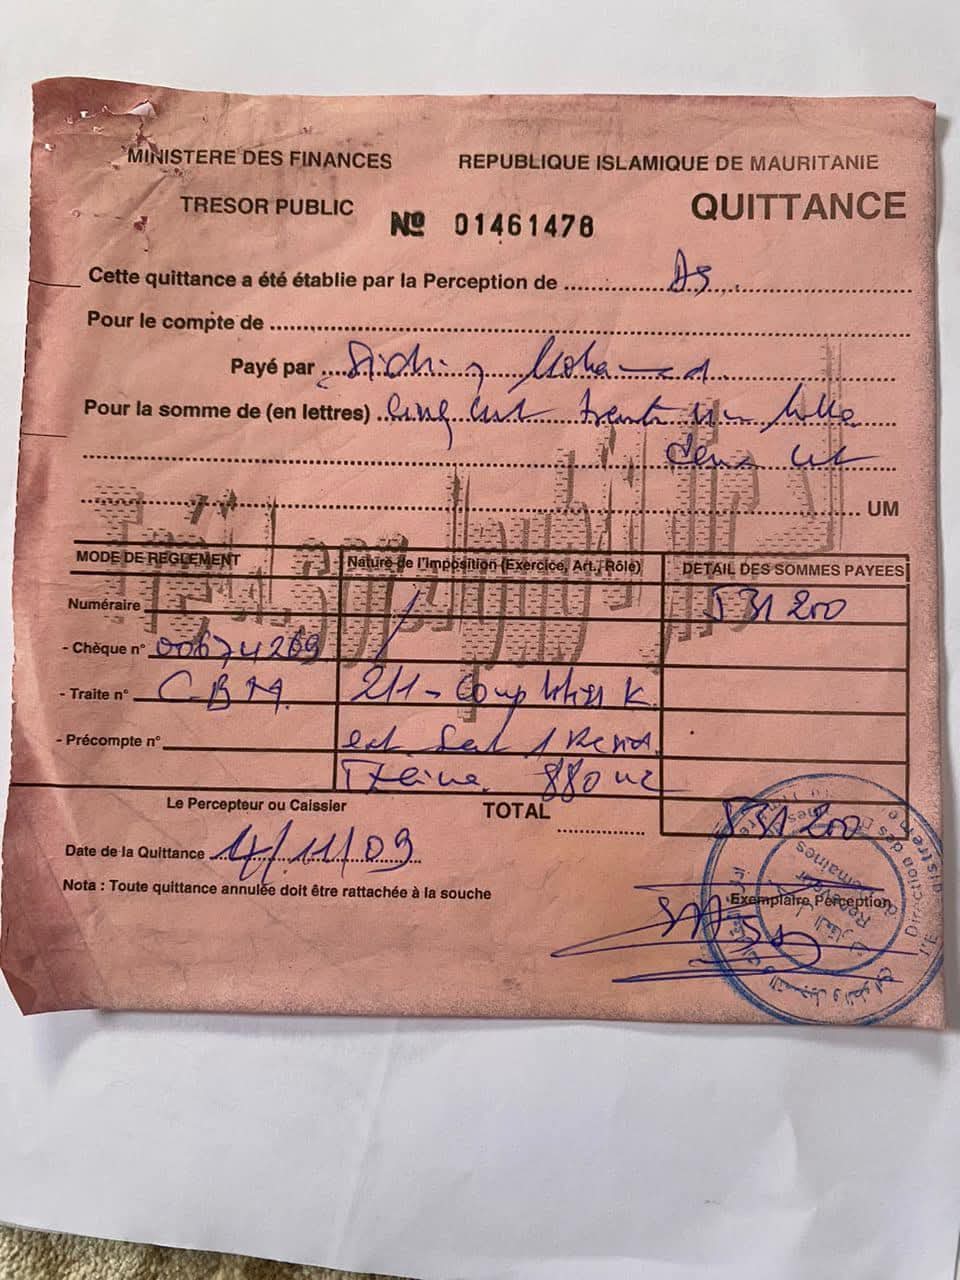 MINISTERE DES FINANCES
REPUBLIQUE ISLAMIQUE DE MAURITANIE
TRESOR PUBLIC
QUITTANCE
Nº 01461478
Cette quittance a été établie par la Perception de
Pour le compte de
Payé par Mohamed
Pour la somme de (en lettres) cinq cent trente un mille
deux cent
UM
MODE DE REGLEMENT
Nature de l'Imposition (Exercice, Art., Rôle)
DETAIL DES SOMMES PAYEES
Numéraire
531 200
- Chèque n° 00674269
- Traite n° CBM
211 -
- Précompte n°
880 m2
Le Percepteur ou Caissier
TOTAL 531 200
Date de la Quittance 4/11/09
Nota : Toute quittance annulée doit être rattachée à la souche
Exemplaire Perception
Direction des Domaines
Receveur